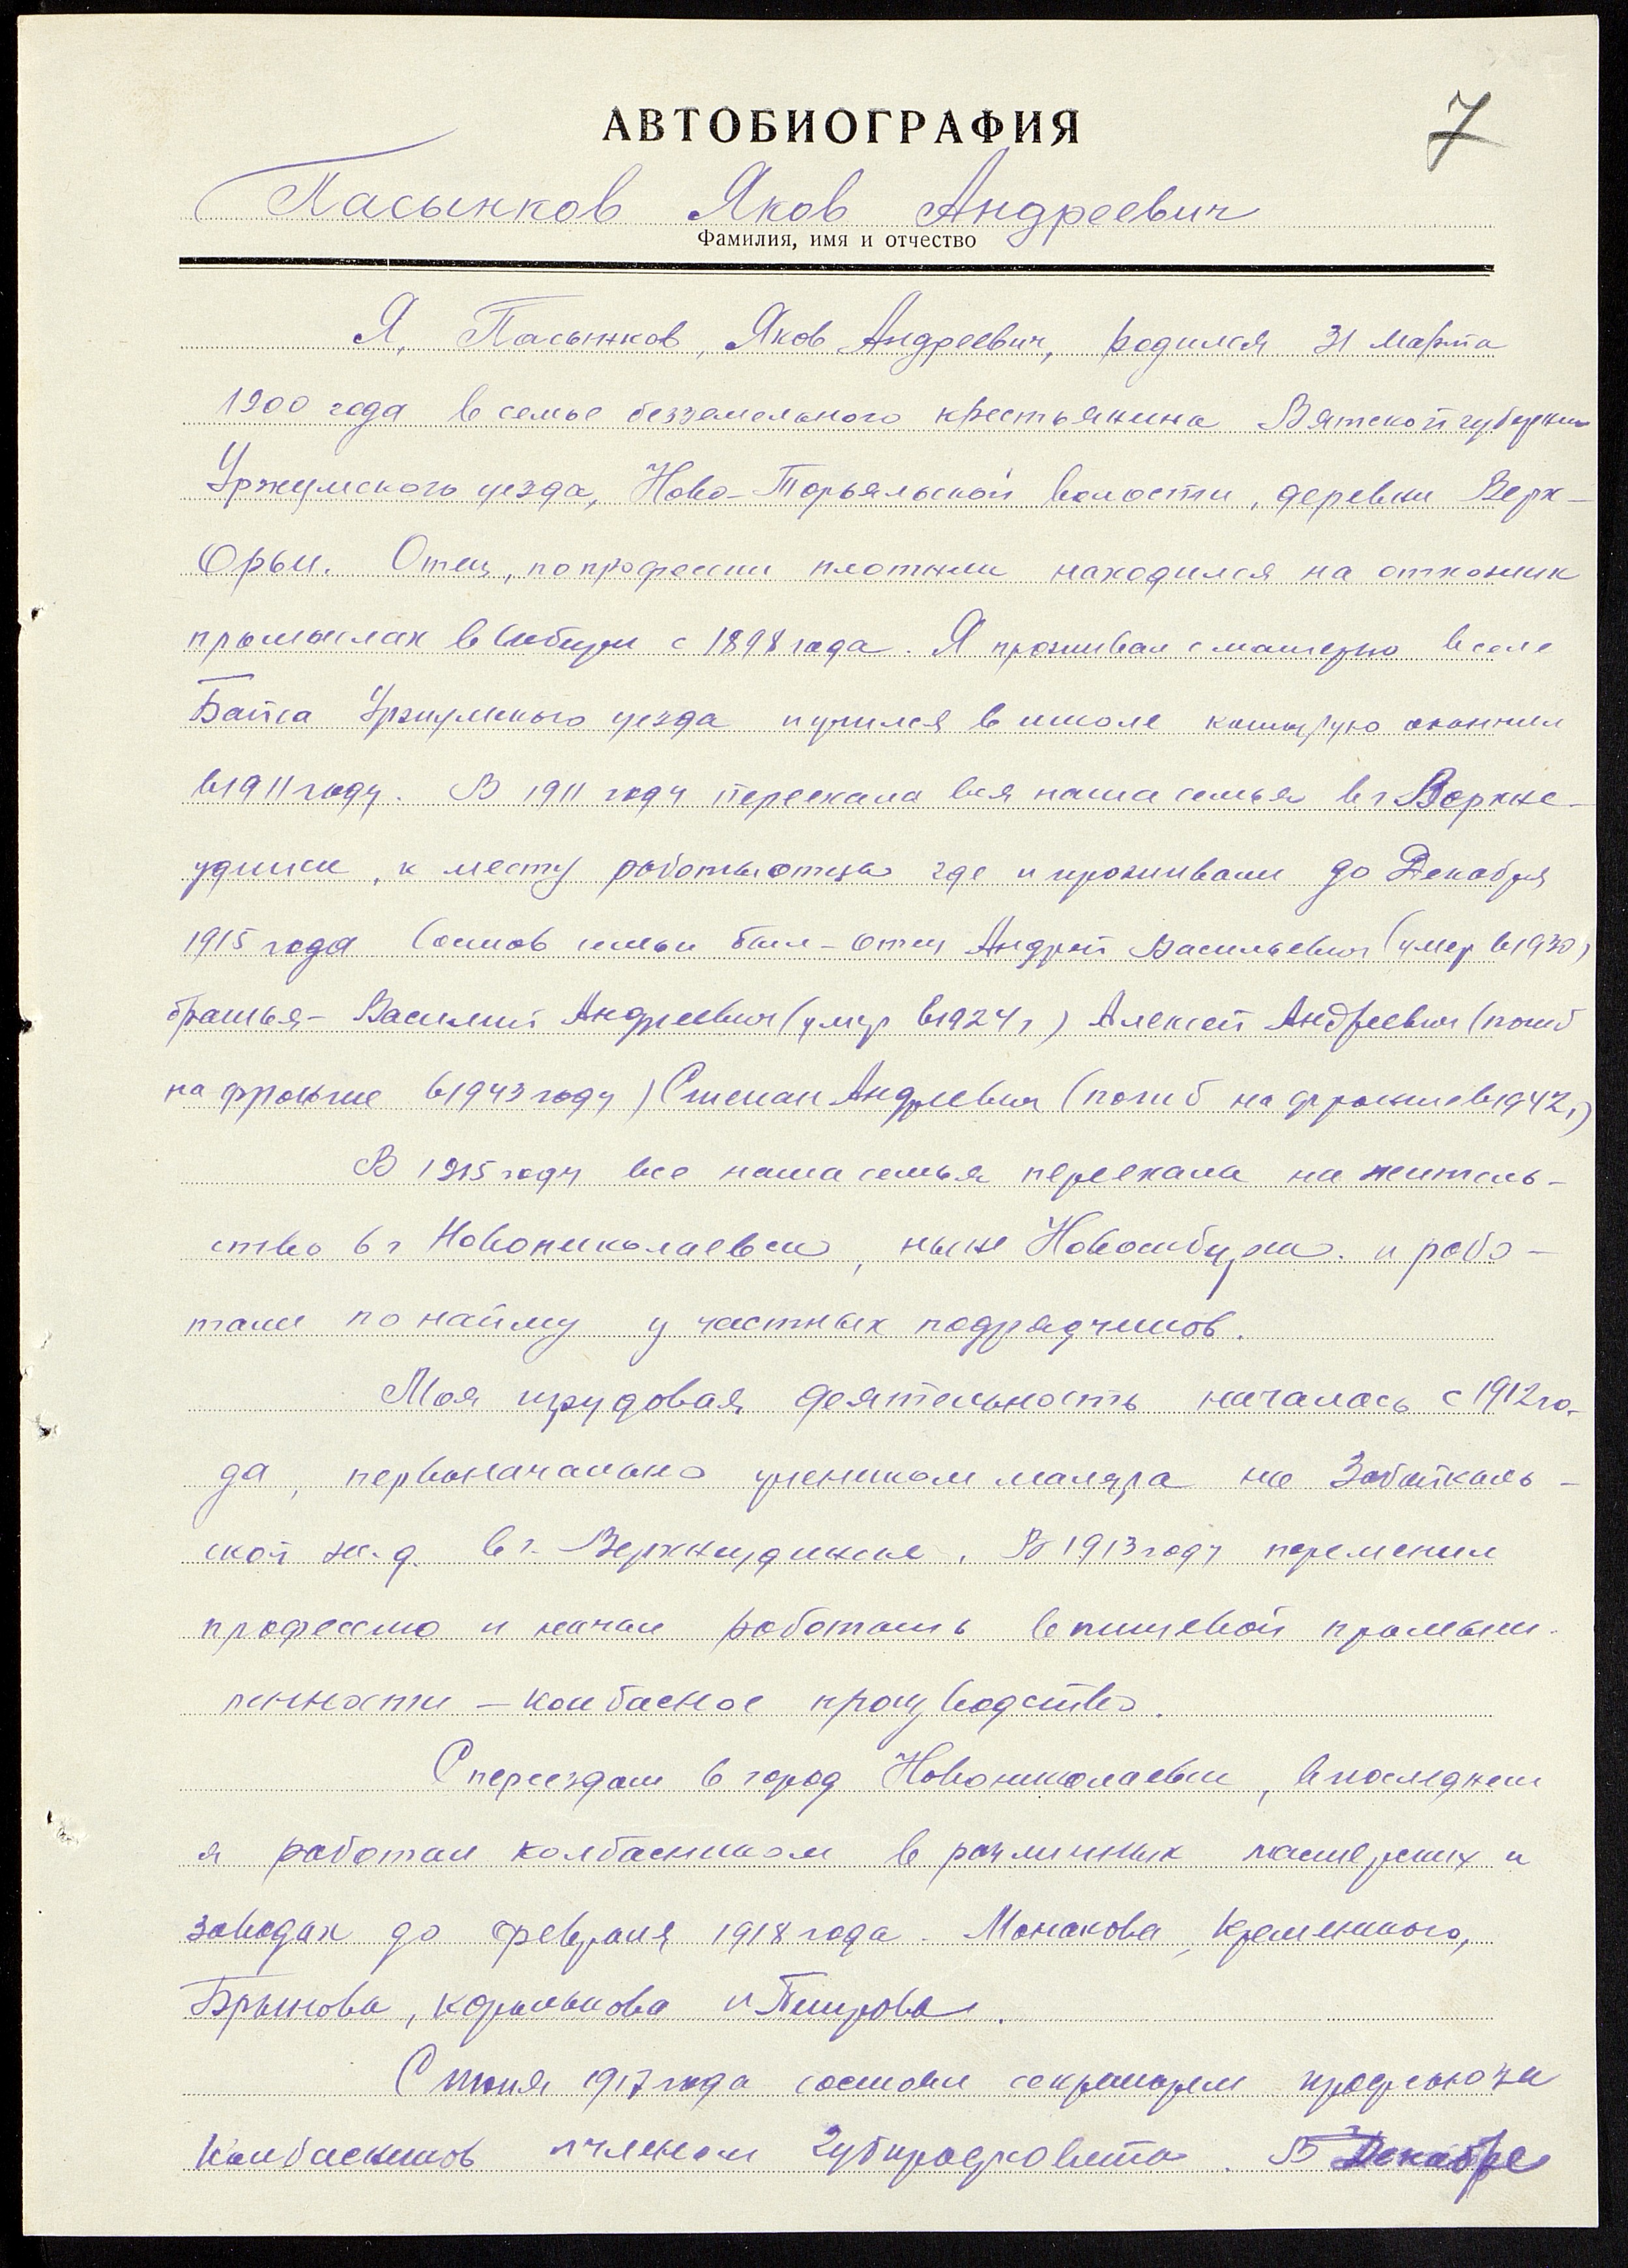 АВТОБИОГРАФИЯ
7
Пасынков Яков Андреевич
Фамилия, имя и отчество
Я, Пасынков, Яков Андреевич, родился 31 марта
1900 года в семье безземельного крестьянина Вятской губернии
Уржумского уезда, Ново-Торъяльской волости, деревни Верх-
Орьи. Отец, по професии плотник находился на отхожик
промыслах в Сибири с 1898 года. Я проживал с матерью в селе
Байса Уржумского уезда и учился в школе которую окончил
в 1911 году. В 1911 году переехала вся наша семья в г Верхне-
удинск, к месту работы отца где и проживали до Декабря
1915 года Состав семьи был - отец Андрей Васильевич (умер в 1930)
братья - Василий Андреевич (умер в 1924 г) Алексей Андреевич (погиб
на фронте в 1943 году) Степан Андреевич (погиб на фронте в 1942 г)
В 1915 году вся наша семья переехала на житель-
ство в г Новониколаевск, ныне Новосибирск. и рабо-
тали по найму у частных подрядчиков.
Моя трудовая деятельность началась с 1912 го-
да, первоначально учеником маляра на Забайкаль-
ской ж.д. в г. Верхнеудинске. В 1913 году переменил
професию и начал работать в пищевой промыш-
ленности - колбасное производство.
С переездом в город Новониколаевск, в последнем
я работал колбасником в различных мастерских и
заводах до февраля 1918 года. Монакова,
Брынова, Корылькова и Петрова.
С июня 1917 года состоял секретарем профсоюза
Колбасников и членом Губпрофсовета. В Декабре